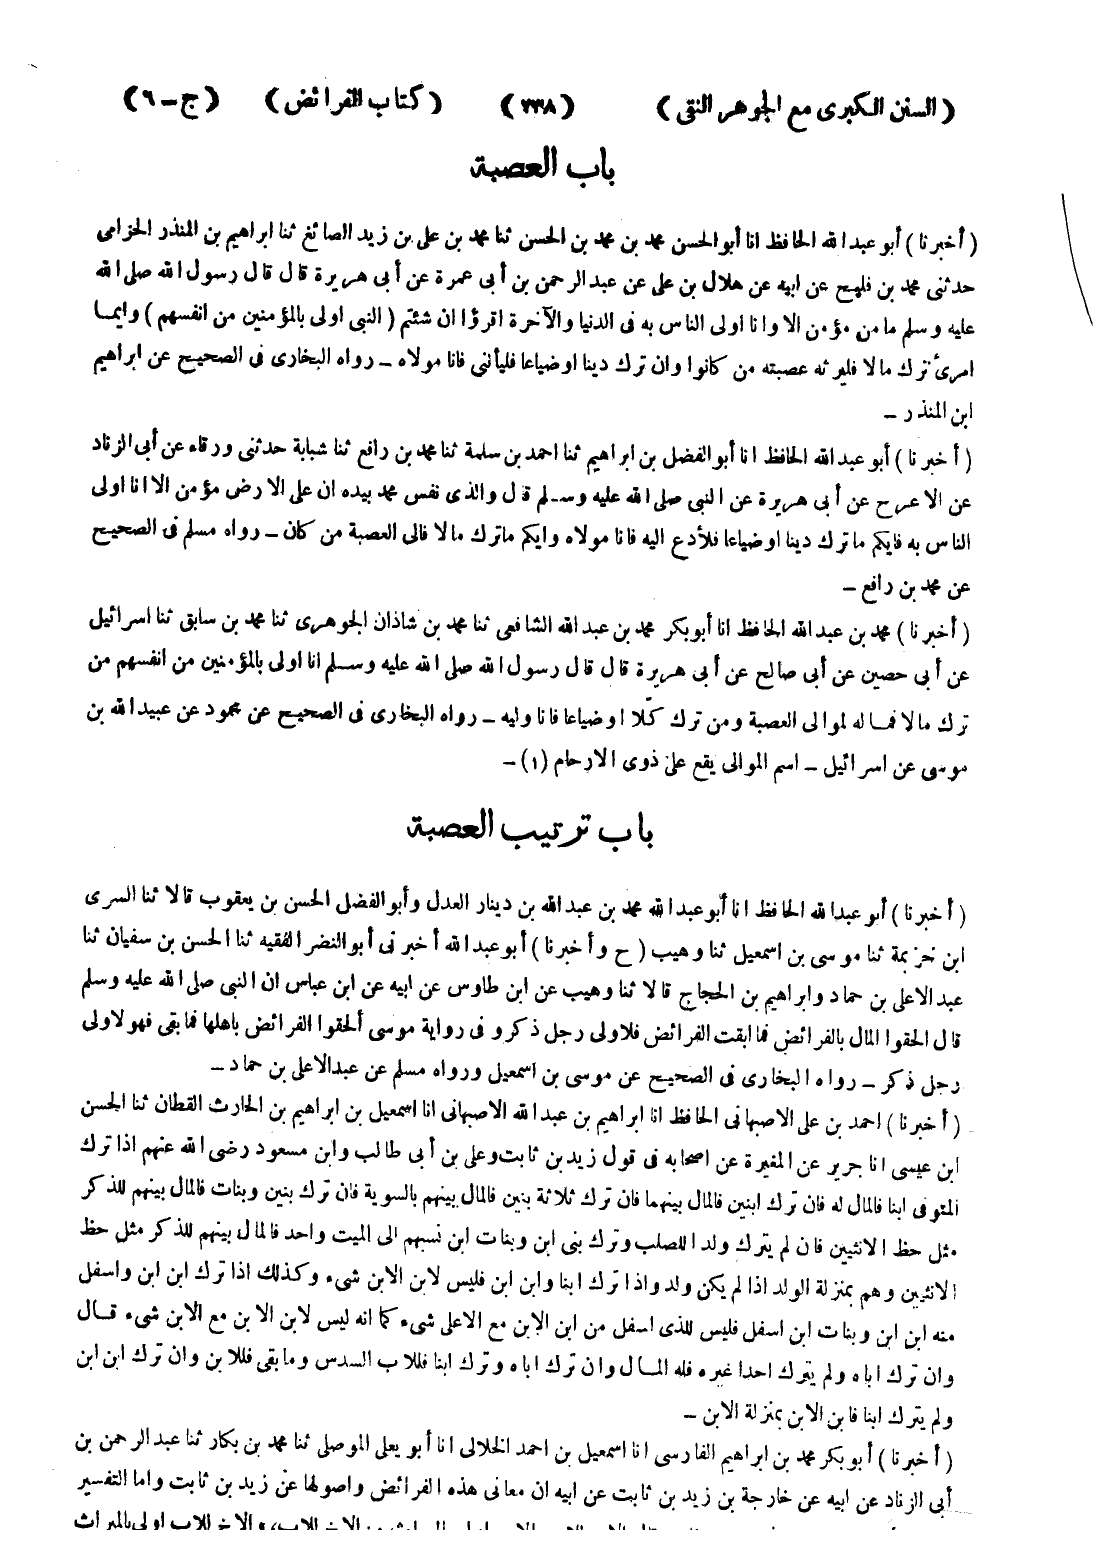 ( السنن الكبرى مع الجوهر النقى ) ( ٢٣٨ ) ( كتاب الفرائض ) ( ج – ٦ )
باب العصبة
( أخبرنا ) أبو عبد الله الحافظ انا أبو الحسن محمد بن محمد بن الحسن ثنا محمد بن على بن زيد الصائغ ثنا ابراهيم بن المنذر الحزامى
حدثنى محمد بن فليح عن ابيه عن هلال بن على عن عبد الرحمن بن أبى عمرة عن أبى هريرة قال قال رسول الله صلى الله
عليه وسلم ما من مؤمن الا وانا اولى الناس به فى الدنيا والآخرة اقرؤا ان شئتم ( النبى اولى بالمؤمنين من انفسهم ) وايما
امرئ ترك مالا فليرثه عصبته من كانوا وان ترك دينا اوضياعا فليأتنى فانا مولاه – رواه البخارى فى الصحيح عن ابراهيم
ابن المنذر –
( أخبرنا ) أبو عبد الله الحافظ انا أبو الفضل بن ابراهيم ثنا احمد بن سلمة ثنا محمد بن رافع ثنا شبابة حدثنى ورقاء عن أبى الزناد
عن الاعرج عن أبى هريرة عن النبى صلى الله عليه وسلم قال والذى نفس محمد بيده ان على الارض مؤمن الا انا اولى
الناس به فايكم ماترك دينا اوضياعا فلأدع اليه فانا مولاه وايكم ماترك مالا فالى العصبة من كان – رواه مسلم فى الصحيح
عن محمد بن رافع –
( أخبرنا ) محمد بن عبد الله الحافظ انا أبو بكر محمد بن عبد الله الشافعى ثنا محمد بن شاذان الجوهرى ثنا محمد بن سابق ثنا اسرائيل
عن أبى حصين عن أبى صالح عن أبى هريرة قال قال رسول الله صلى الله عليه وسلم انا اولى بالمؤمنين من انفسهم من
ترك مالا فماله لموالى العصبة ومن ترك كلّا اوضياعا فانا وليه – رواه البخارى فى الصحيح عن محمود عن عبيد الله بن
موسى عن اسرائيل – اسم الموالى يقع على ذوى الارحام (١) –
باب ترتيب العصبة
( أخبرنا ) أبو عبد الله الحافظ انا أبو عبد الله محمد بن عبد الله بن دينار العدل وأبو الفضل الحسن بن يعقوب قالا ثنا السرى
ابن خزيمة ثنا موسى بن اسمعيل ثنا وهيب ( ح وأخبرنا ) أبو عبد الله أخبرنى أبو النضر الفقيه ثنا الحسن بن سفيان ثنا
عبد الاعلى بن حماد وابراهيم بن الحجاج قالا ثنا وهيب عن ابن طاوس عن ابيه عن ابن عباس ان النبى صلى الله عليه وسلم
قال الحقوا المال بالفرائض فما ابقت الفرائض فلاولى رجل ذكر و فى رواية موسى ألحقوا الفرائض باهلها فما بقى فهو لاولى
رجل ذكر – رواه البخارى فى الصحيح عن موسى بن اسمعيل ورواه مسلم عن عبد الاعلى بن حماد –
( أخبرنا ) احمد بن على الاصبهانى الحافظ انا ابراهيم بن عبد الله الاصبهانى انا اسمعيل بن ابراهيم بن الحارث القطان ثنا الحسن
ابن عيسى انا جرير عن المغيرة عن اصحابه فى قول زيد بن ثابت وعلى بن أبى طالب وابن مسعود رضى الله عنهم اذا ترك
المتوفى ابنا فالمال له فان ترك ابنين فالمال بينهما فان ترك ثلاثة بنين فالمال بينهم بالسوية فان ترك بنين وبنات فالمال بينهم للذكر
مثل حظ الانثيين فان لم يترك ولدا للصلب وترك بنى ابن وبنات ابن نسبهم الى الميت واحد فالمال بينهم للذكر مثل حظ
الانثيين وهم بمنزلة الولد اذا لم يكن ولد واذا ترك ابنا وابن ابن فليس لابن الابن شىء وكذلك اذا ترك ابن ابن واسفل
منه ابن ابن وبنات ابن اسفل فليس للذى اسفل من ابن الابن مع الاعلى شىء كما انه ليس لابن الابن مع الابن شىء قال
وان ترك اباه ولم يترك احدا غيره فله المال وان ترك اباه وترك ابنا فللاب السدس وما بقى فللابن وان ترك ابن ابن
ولم يترك ابنا فابن الابن بمنزلة الابن –
( أخبرنا ) أبو بكر محمد بن ابراهيم الفارسى انا اسمعيل بن احمد الخلالى انا أبو يعلى الموصلى ثنا محمد بن بكار ثنا عبد الرحمن بن
أبى الزناد عن ابيه عن خارجة بن زيد بن ثابت عن ابيه ان معانى هذه الفرائض واصولها عن زيد بن ثابت واما التفسير
من الاخ للاب، والاخ للاب اولى بالميراث